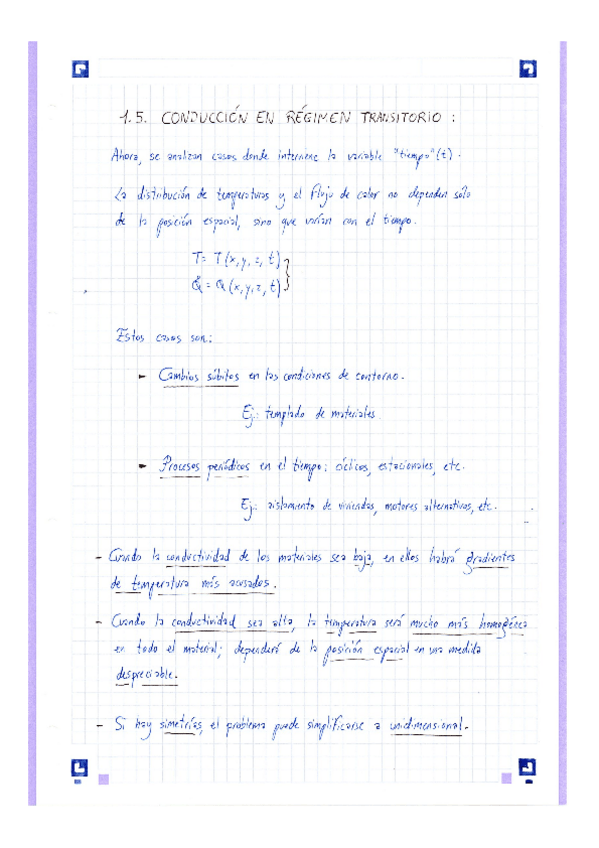 1.5. CONDUCCIÓN EN RÉGIMEN TRANSITORIO :
Ahora, se analizan casos donde interviene la variable "tiempo" (t).
La distribución de temperaturas y el flujo de calor no dependen sólo
de la posición espacial, sino que varían con el tiempo.
T = T(x,y,z,t)
Q̇ = Q(x,y,z,t)
Estos casos son:
- Cambios súbitos en las condiciones de contorno.
Ej.: templado de materiales.
- Procesos periódicos en el tiempo: cíclicos, estacionales, etc.
Ej.: aislamiento de viviendas, motores alternativos, etc.
- Cuando la conductividad de los materiales sea baja, en ellos habrá gradientes
de temperatura más acusados.
- Cuando la conductividad sea alta, la temperatura será mucho más homogénea
en todo el material; dependerá de la posición espacial en una medida
despreciable.
- Si hay simetrías, el problema puede simplificarse a unidimensional.